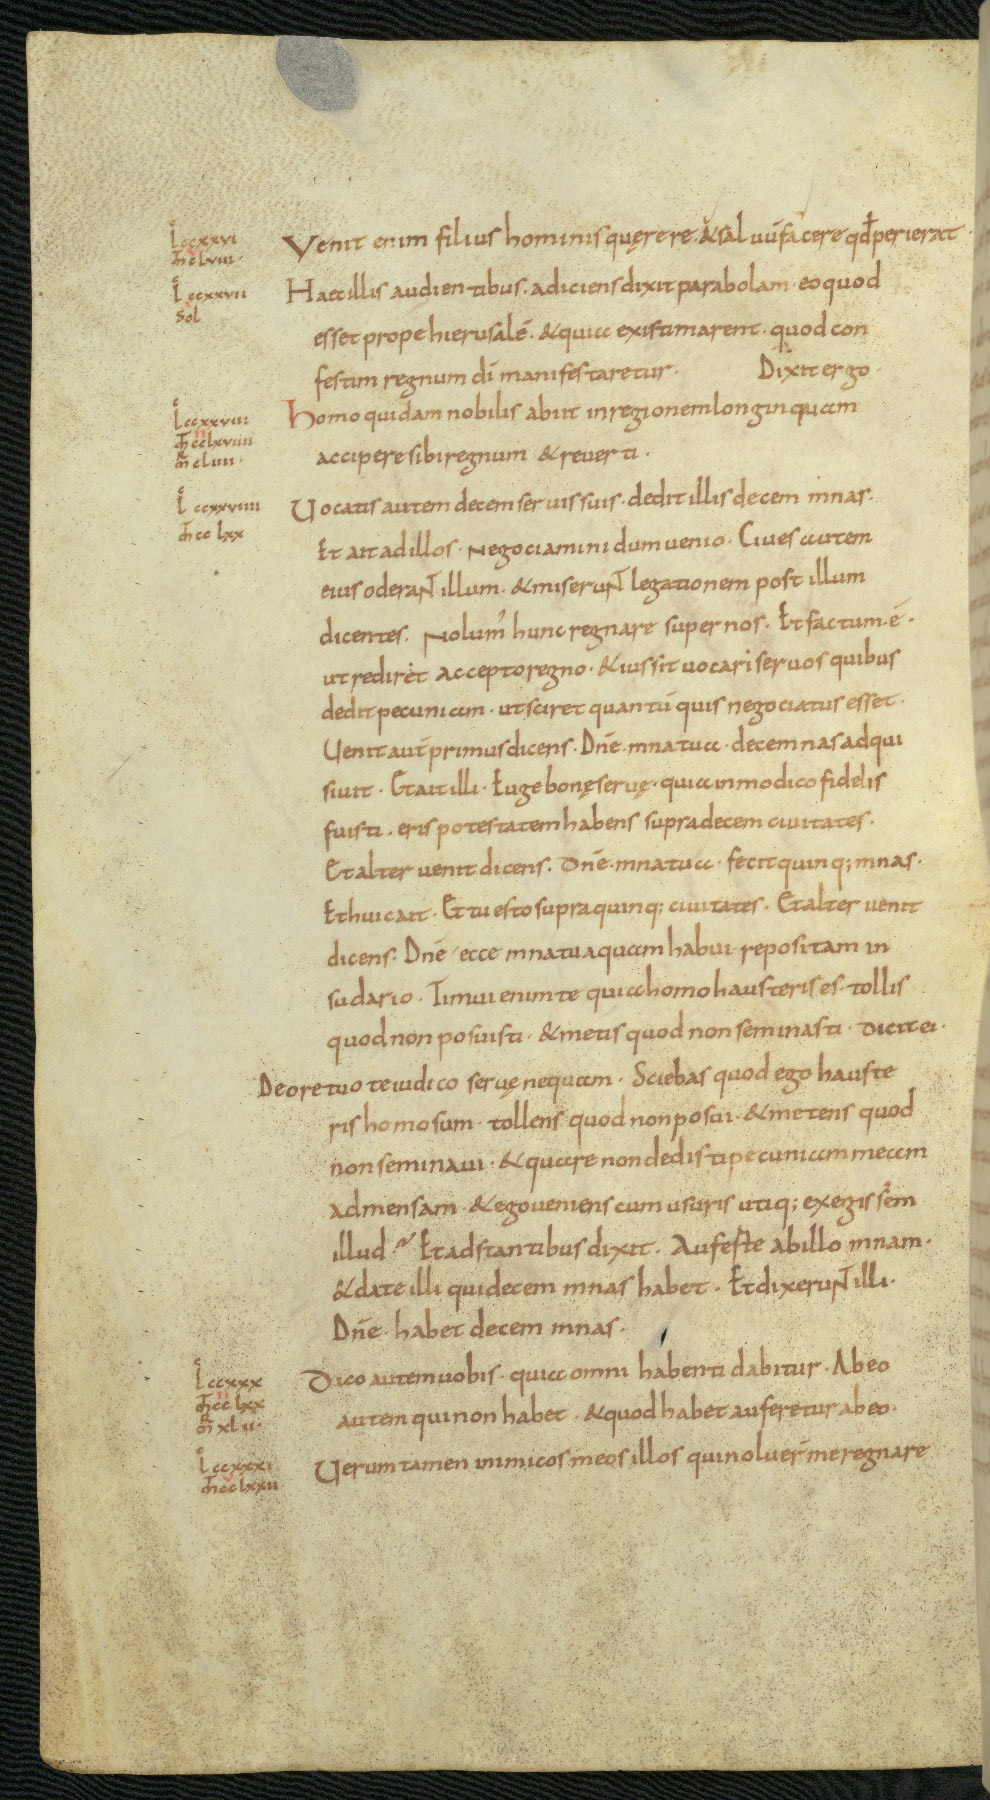 L ccxxvi
m̄ clviii ·
Venit enim filius hominis quęrere · & sal uū facere qđ perierat ·
L ccxxvii
Sol
Haec illis audientibus · adiciens dixit parabolam · eo quod
esset prope hierusalē · & quia existimarent · quod con
festim regnum dī manifestaretur · Dixit ergo ·
L ccxxviii
m̄ cclxviiii
m̄ cliiii ·
Homo quidam nobilis abiit in regionem longinquam
accipere sibi regnum & reverti ·
L ccxxviiii
m̄ cc lxx
Uocatis autem decem servis suis · dedit illis decem mnas ·
Et ait ad illos · Negociamini dum venio · Cives autem
eius oderaNT illum · & miseruNT legationem post illum
dicentes · Nolum' hunc regnare super nos · Et factum · ē ·
ut rediret accepto regno · & iussit uocari seruos quibus
dedit pecuniam · ut sciret quantū quis negociatus esset ·
Uenit aut̄ primus dicens · Dn̄e · mna tua · decem nas adqui
siuit · Et ait illi · Euge bonę seruę · quia in modico fidelis
fuisti · eris potestatem habens supra decem ciuitates ·
Et alter venit dicens · Dn̄e · mna tua · fecit quinq; mnas ·
Et huic ait · Et tu esto supra quinq; ciuitates · Et alter venit
dicens · Dn̄e ecce mna tua quam habui repositam in
sudario · Timui enim te quia homo hausteris es · tollis
quod non posuisti · & metis quod non seminasti · Dicit ei ·
De ore tuo te iudico seruę nequam · Sciebas quod ego hauste
ris homo sum · tollens quod non posui · & metens quod
non seminaui · & quare non dedisti pecuniam meam
ad mensam · & ego ueniens cum usuris utiq; exegissem
illud · Et adstantibus dixit · Auferte ab illo mnam ·
& date illi qui decem mnas habet · Et dixeruNT illi ·
Dn̄e · habet decem mnas ·
L ccxxx
m̄ cc lxx
m̄ xl ii ·
Dico autem uobis · quia omni habenti dabitur · Ab eo
autem qui non habet · & quod habet auferetur ab eo ·
L ccxxxi
m̄ cc lxxii
Uerum tamen inimicos meos illos qui noluer̄ me regnare